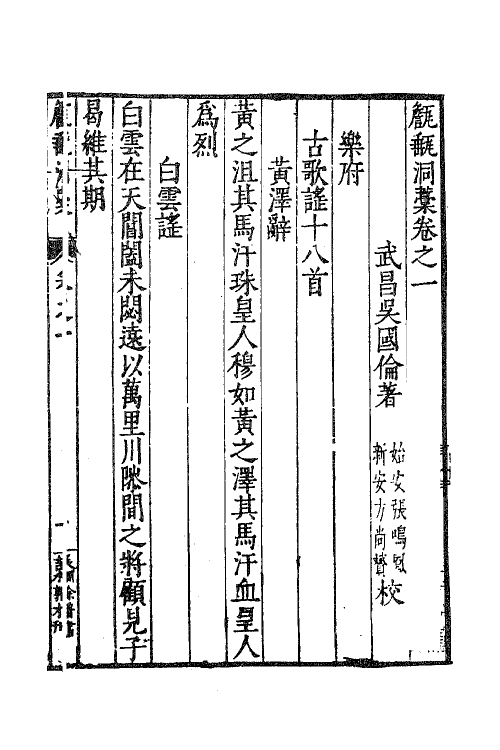 甔甀洞藁卷之一
武昌吳國倫著
始安張鳴鳳
新安方尚贇 校
樂府
古歌謠十八首
黃澤辭
黃之沮其馬汗珠皇人穆如黃之澤其馬汗血皇人
爲烈
白雲謠
白雲在天閶闔未閟遠以萬里川隙間之將顧見子
曷維其期